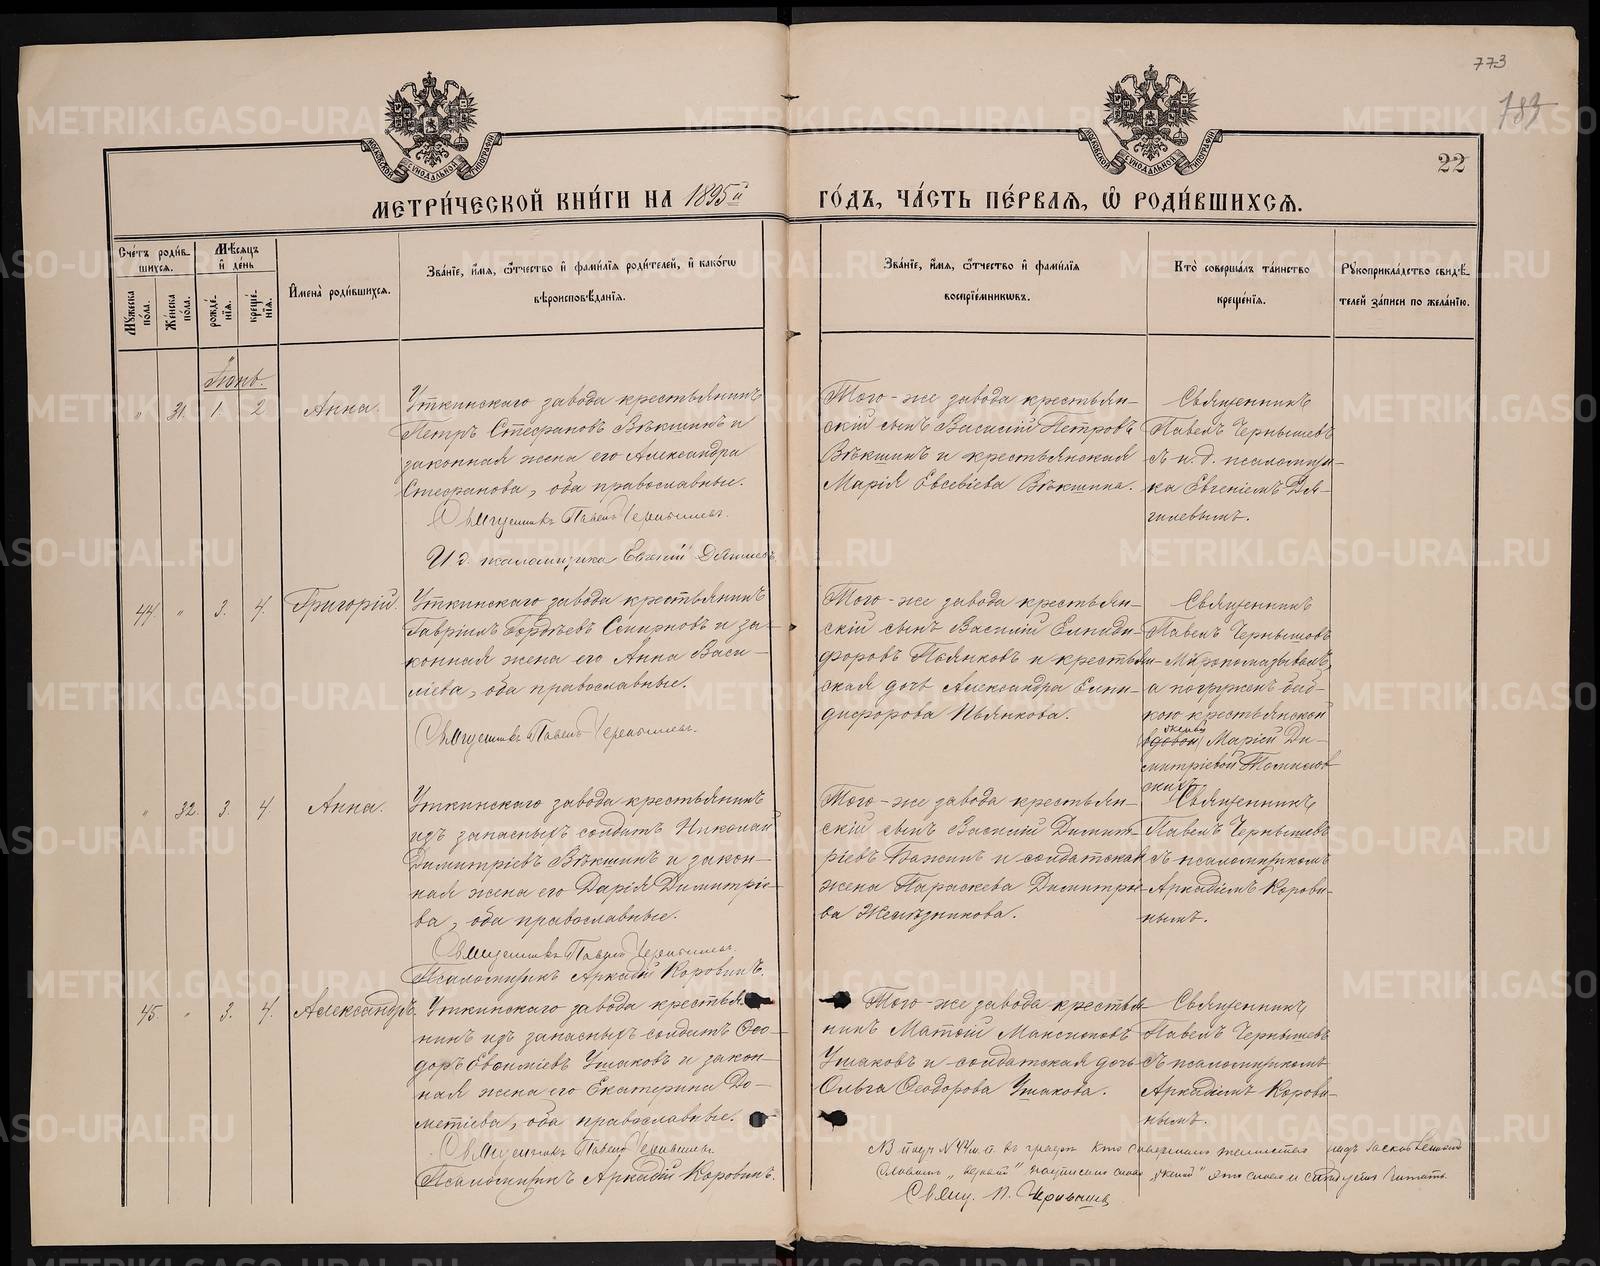 773
783
22
МЕТРИ́ЧЕСКОЙ КНИ́ГИ НА 1895й ГО́ДЪ, ЧА́СТЬ ПЕ́РВАЯ, Ѡ РОДИ́ВШИХСЯ.
Сче́тъ роди́в-
шихся.
Мꙋ́жеска по́ла.
Же́нска по́ла.
Мѣ́сяцъ
и де́нь
рожде́-
нїя.
креще́-
нїя.
И́мена̀ роди́вшихся.
Зва́нїе, и́мя, ѻ́тчество и фами́лїя роди́телей, и како́гѡ
вѣроисповѣ́данїя.
Зва́нїе, и́мя, ѻ́тчество и фами́лїя
воспрїе́мникѡвъ.
Кто̀ соверша́лъ та́инство
креще́нїя.
Рꙋкоприкла́дство свидѣ́-
телей за́писи по жела́нїю.
Іюнь.
" 31. 1. 2. Анна.
Уткинскаго завода крестьянинъ
Петръ Стефановъ Вѣкшинъ и
законная жена его Александра
Стефанова, оба православные.
Священникъ Павелъ Чернышевъ.
И д. псаломщика Евгеній Дягилевъ
Того-же завода крестьян-
скій сынъ Василій Петровъ
Вѣкшинъ и крестьянская
Марія Евсевіева Вѣкшина.
Священникъ
Павелъ Чернышевъ
съ и. д. псаломщи-
ка Евгеніемъ Дя-
гилевымъ.
44. " 3. 4. Григорій.
Уткинскаго завода крестьянинъ
Гавріилъ Гордѣевъ Смирновъ и за-
конная жена его Анна Васи-
ліева, оба православные.
Священникъ Павелъ Чернышевъ.
Того-же завода крестьян-
скій сынъ Василій Елпиди-
форовъ Пьянковъ и крестьян-
ская дочь Александра Елпи-
дифорова Пьянкова.
Священникъ
Павелъ Чернышовъ
Мѵропомазывалъ,
а погруженъ баб-
кою крестьянской
женой
вдовой Маріей Ди-
митріевой
" 32. 3. 4. Анна.
Уткинскаго завода крестьянинъ
изъ запасныхъ солдатъ Николай
Димитріевъ Вѣкшинъ и закон-
ная жена его Дарія Димитріе-
ва, оба православные.
Священникъ Павелъ Чернышевъ.
Псаломщикъ Аркадій Коровинъ.
Того-же завода крестьян-
скій сынъ Василій Димит-
ріевъ Бажинъ и солдатская
жена Параскева Димитріе-
ва Желѣзникова.
Священникъ
Павелъ Чернышевъ
съ псаломщикомъ
Аркадіемъ Корови-
нымъ.
45. " 3. 4. Александръ.
Уткинскаго завода крестья-
нинъ изъ запасныхъ солдатъ Ѳео-
доръ Евѳиміевъ Ушаковъ и закон-
ная жена его Екатерина До-
метіева, оба православные.
Священникъ Павелъ Чернышевъ.
Псаломщикъ Аркадій Коровинъ.
Того-же завода крестья-
нинъ Матѳій Максимовъ
Ушаковъ и солдатская дочь
Ольга Ѳеодорова Ушакова.
Священникъ
Павелъ Чернышевъ
съ псаломщикомъ
Аркадіемъ Корови-
нымъ.
въ графѣ кто совершалъ таинство надъ
словомъ "вдовой" надписано слово "женой" это слово и слѣдуетъ читать.
Свящ. П. Чернышев
METRIKI.GASO-URAL.RU